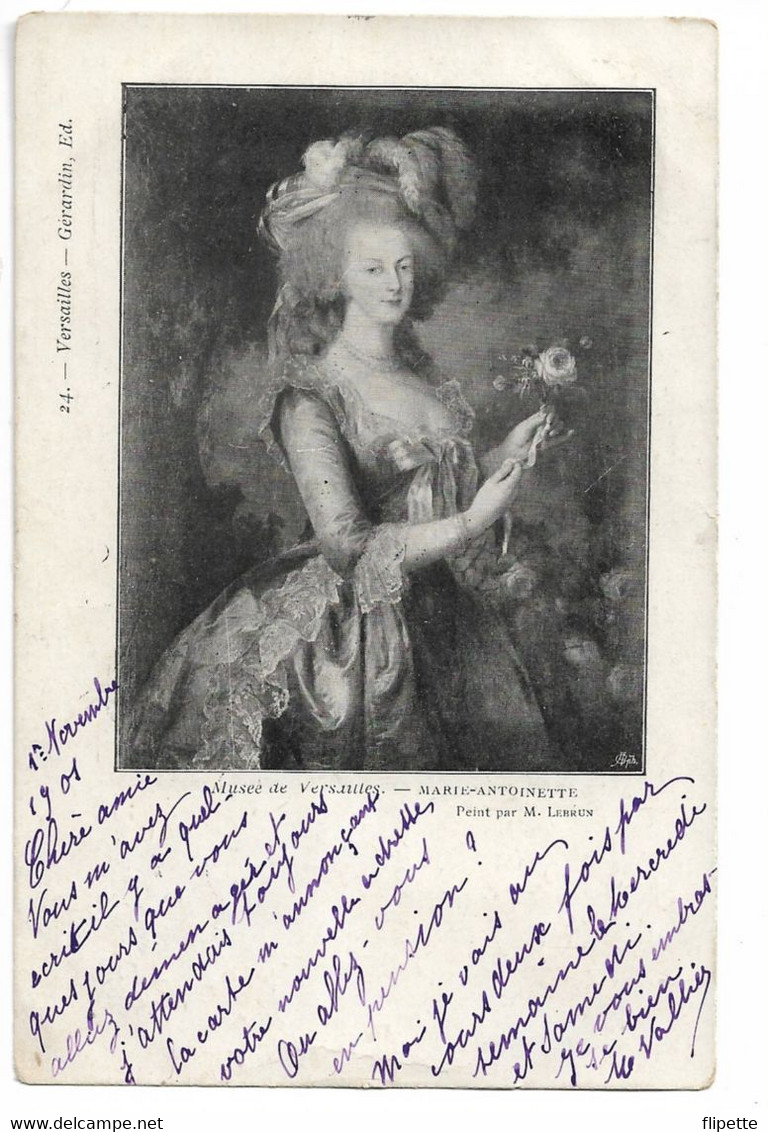 24. — Versailles — Gérardin, Ed.
Musée de Versailles. — MARIE-ANTOINETTE
Peint par M. LEBRUN
1er Novembre
1901
Chère amie
Vous m'avez
écrit il y a quel-
ques jours que vous
allez déménager et
j'attendais toujours
la carte m'annonçant
votre nouvelle adresse
Ou allez-vous
en pension ?
Moi je vais au
cours deux fois par
semaine le Mercredi
et Samedi.
Je vous embras-
se bien
M Vallier
flipette